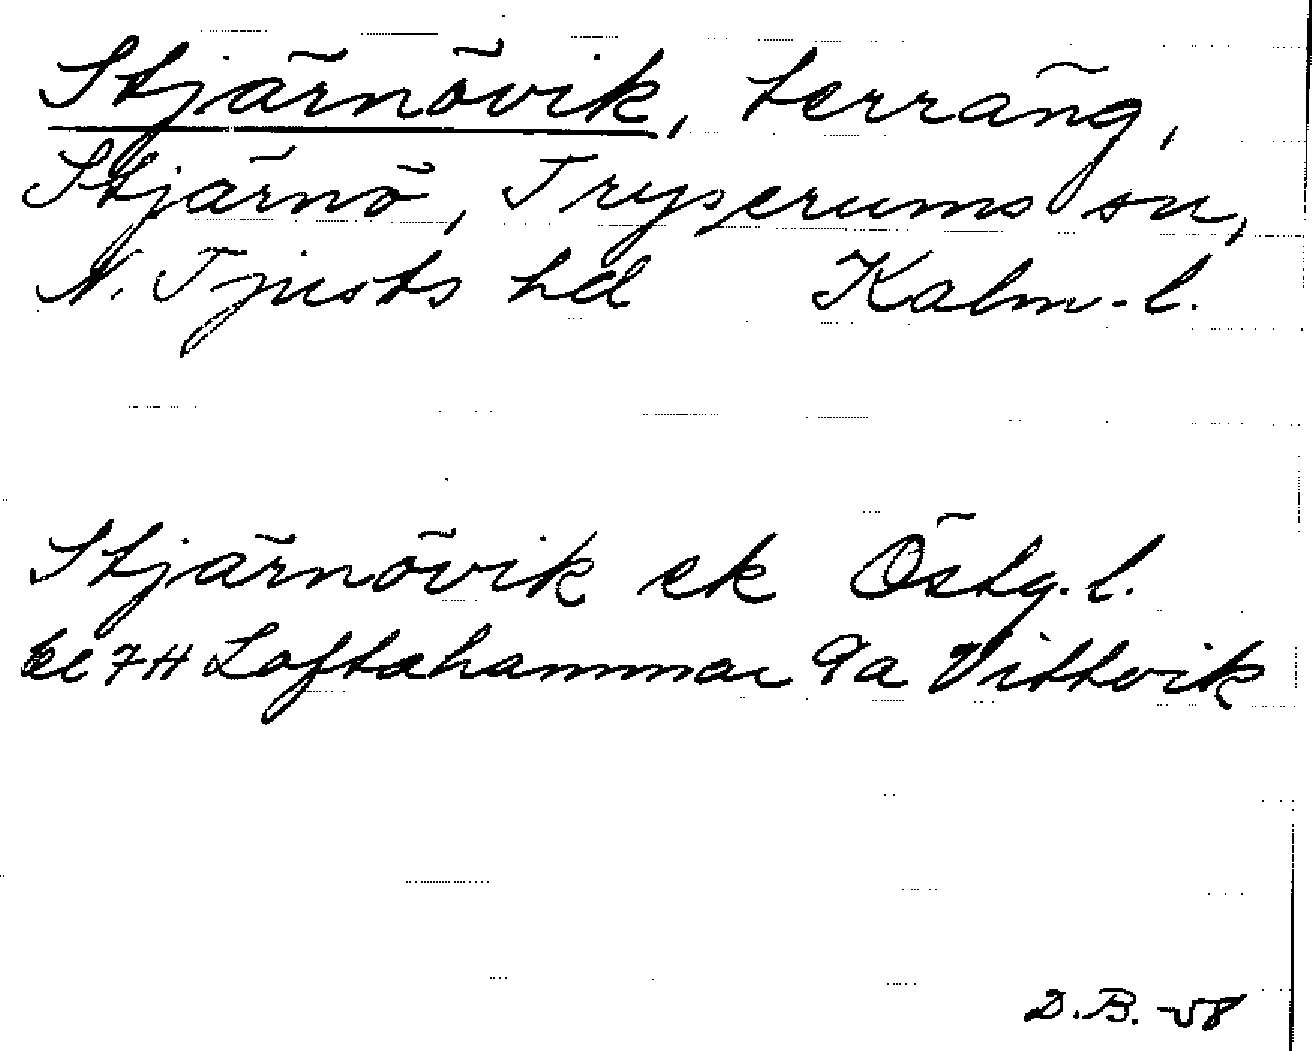 Stjärnövik, terräng,
Stjärnö, Tryserums sn,
N. Tjusts hd Kalm. l.
Stjärnövik ek Östg. l.
bl 7H Loftahammar 9a Vittvik
D.B. -58